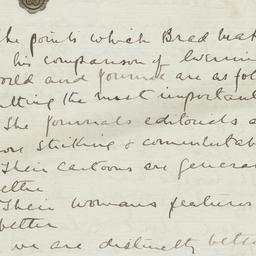 the points which Brad mak
his comparison of Evenin
World and Journal are as fol
utting the most important
The Journals editorials a
ore striking & commentab
Their cartoons are genera
etter
Their womans features
better
we are distinctly bette